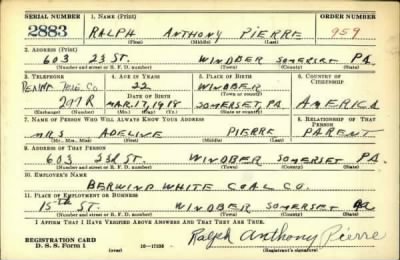 SERIAL NUMBER 1. NAME (Print) ORDER NUMBER
2883 RALPH ANTHONY PIERRE 959
(First) (Middle) (Last)
2. ADDRESS (Print)
603 23 ST. WINDBER SOMERSET PA.
(Number and street or R. F. D. number) (Town) (County) (State)
3. TELEPHONE 4. AGE IN YEARS 5. PLACE OF BIRTH 6. COUNTRY OF CITIZENSHIP
PENNA TELE. CO 22 WINDBER
DATE OF BIRTH (Town or county)
207R MAR. 17, 1918 SOMERSET, PA AMERICA
(Exchange) (Number) (Mo.) (Day) (Yr.) (State or country)
7. NAME OF PERSON WHO WILL ALWAYS KNOW YOUR ADDRESS 8. RELATIONSHIP OF THAT PERSON
MRS ADELINE PIERRE PARENT
(Mr., Mrs., Miss) (First) (Middle) (Last)
9. ADDRESS OF THAT PERSON
603 23RD ST. WINDBER SOMERSET PA.
(Number and street or R. F. D. number) (Town) (County) (State)
10. EMPLOYER'S NAME
BERWIND WHITE COAL CO.
11. PLACE OF EMPLOYMENT OR BUSINESS
15TH ST. WINDBER SOMERSET PA
(Number and street or R. F. D. number) (Town) (County) (State)
I AFFIRM THAT I HAVE VERIFIED ABOVE ANSWERS AND THAT THEY ARE TRUE.
REGISTRATION CARD
D. S. S. Form 1 (over) Ralph Anthony Pierre